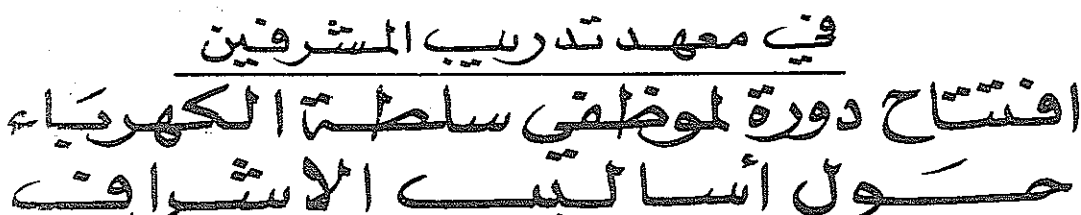 في معهد تدريب المشرفين
افتتاح دورة لموظفي سلطة الكهرباء
حول أساليب الاشراف